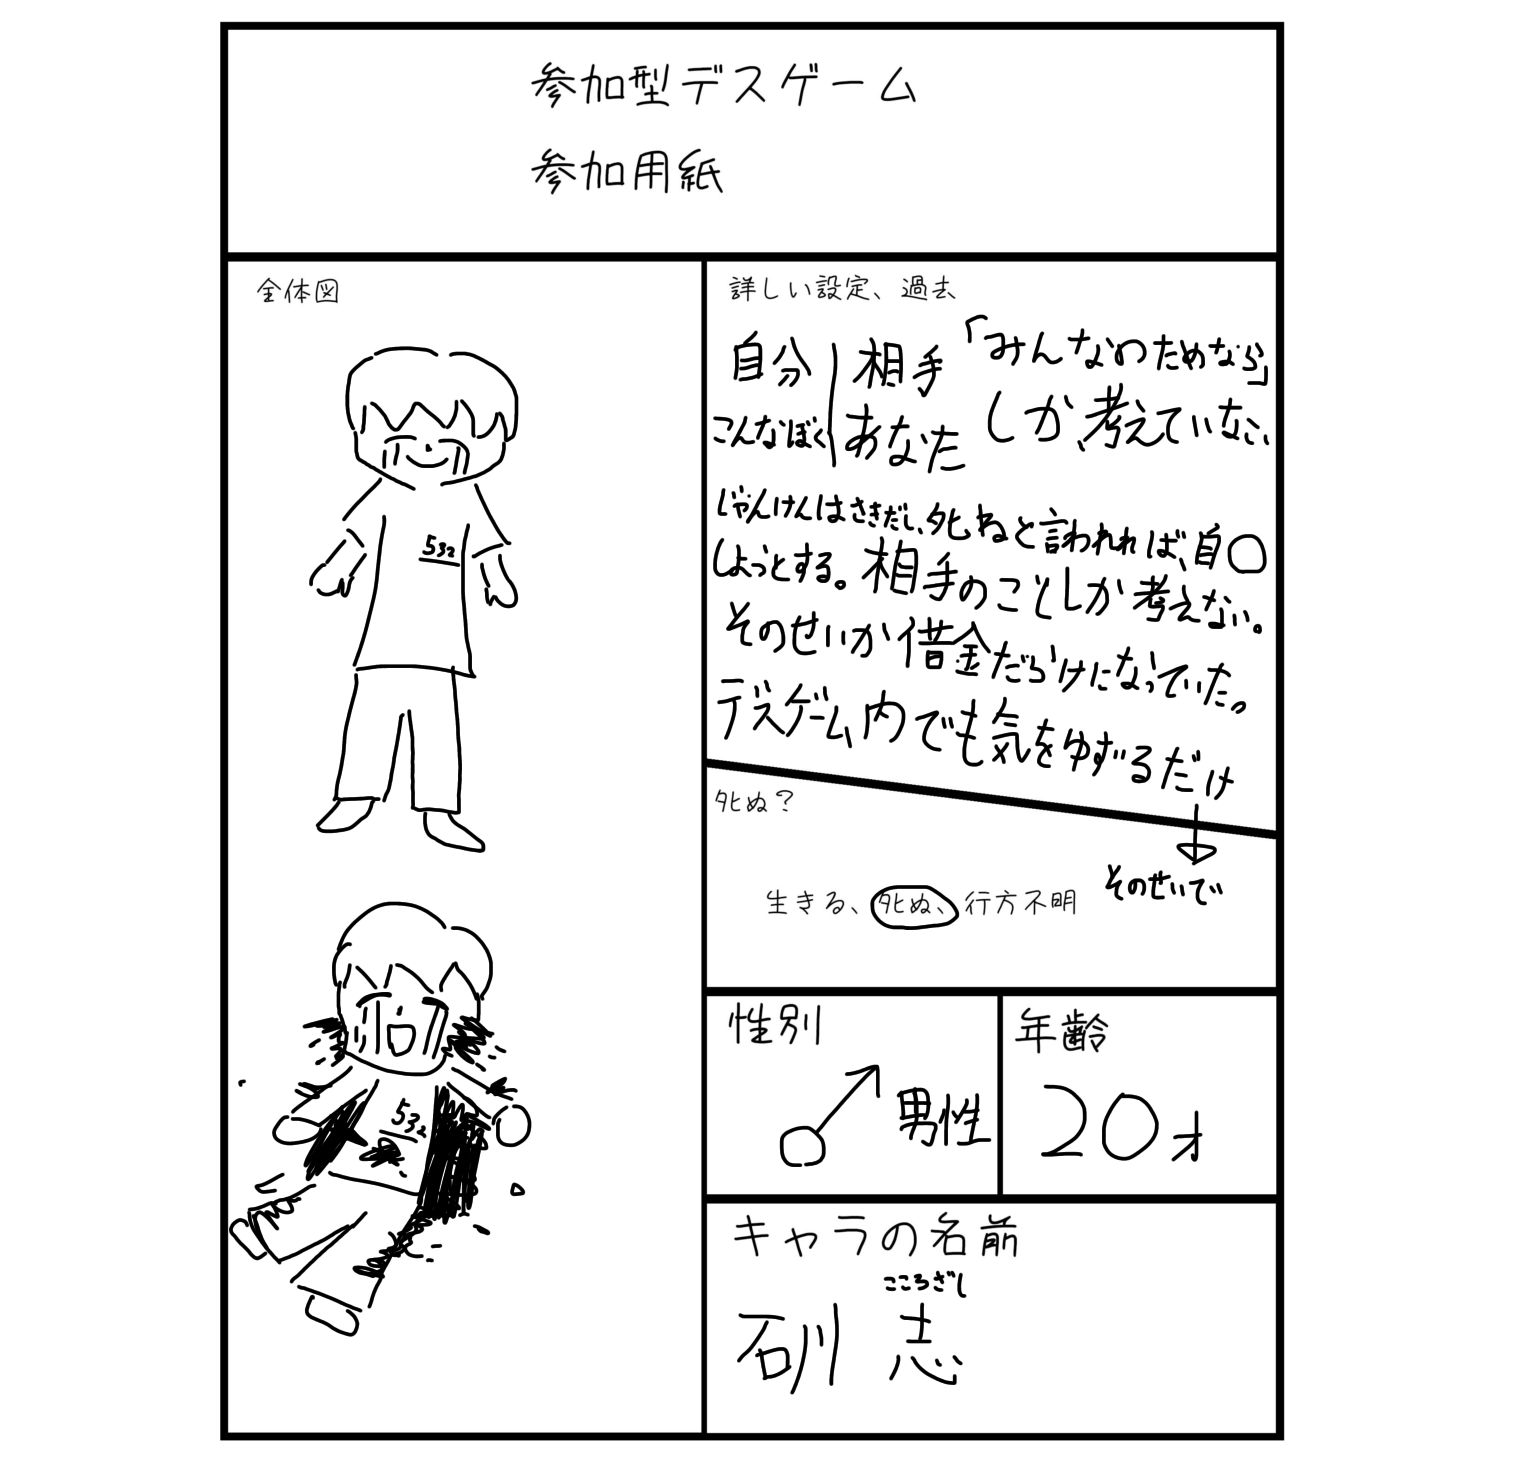 参加型デスゲーム
参加用紙
全体図
532
532
詳しい設定、過去
自分
こんなぼく
相手
あなた
「みんなのためなら」
しか考えていない
じゃんけんはさきだし、死ねと言われれば、自〇
しようとする。相手のことしか考えない。
そのせいか借金だらけになっていた。
デスゲーム内でも気をゆずるだけ
死ぬ？
そのせいで
生きる、死ぬ、行方不明
性別
♂男性
年齢
20才
キャラの名前
こころざし
石川 志